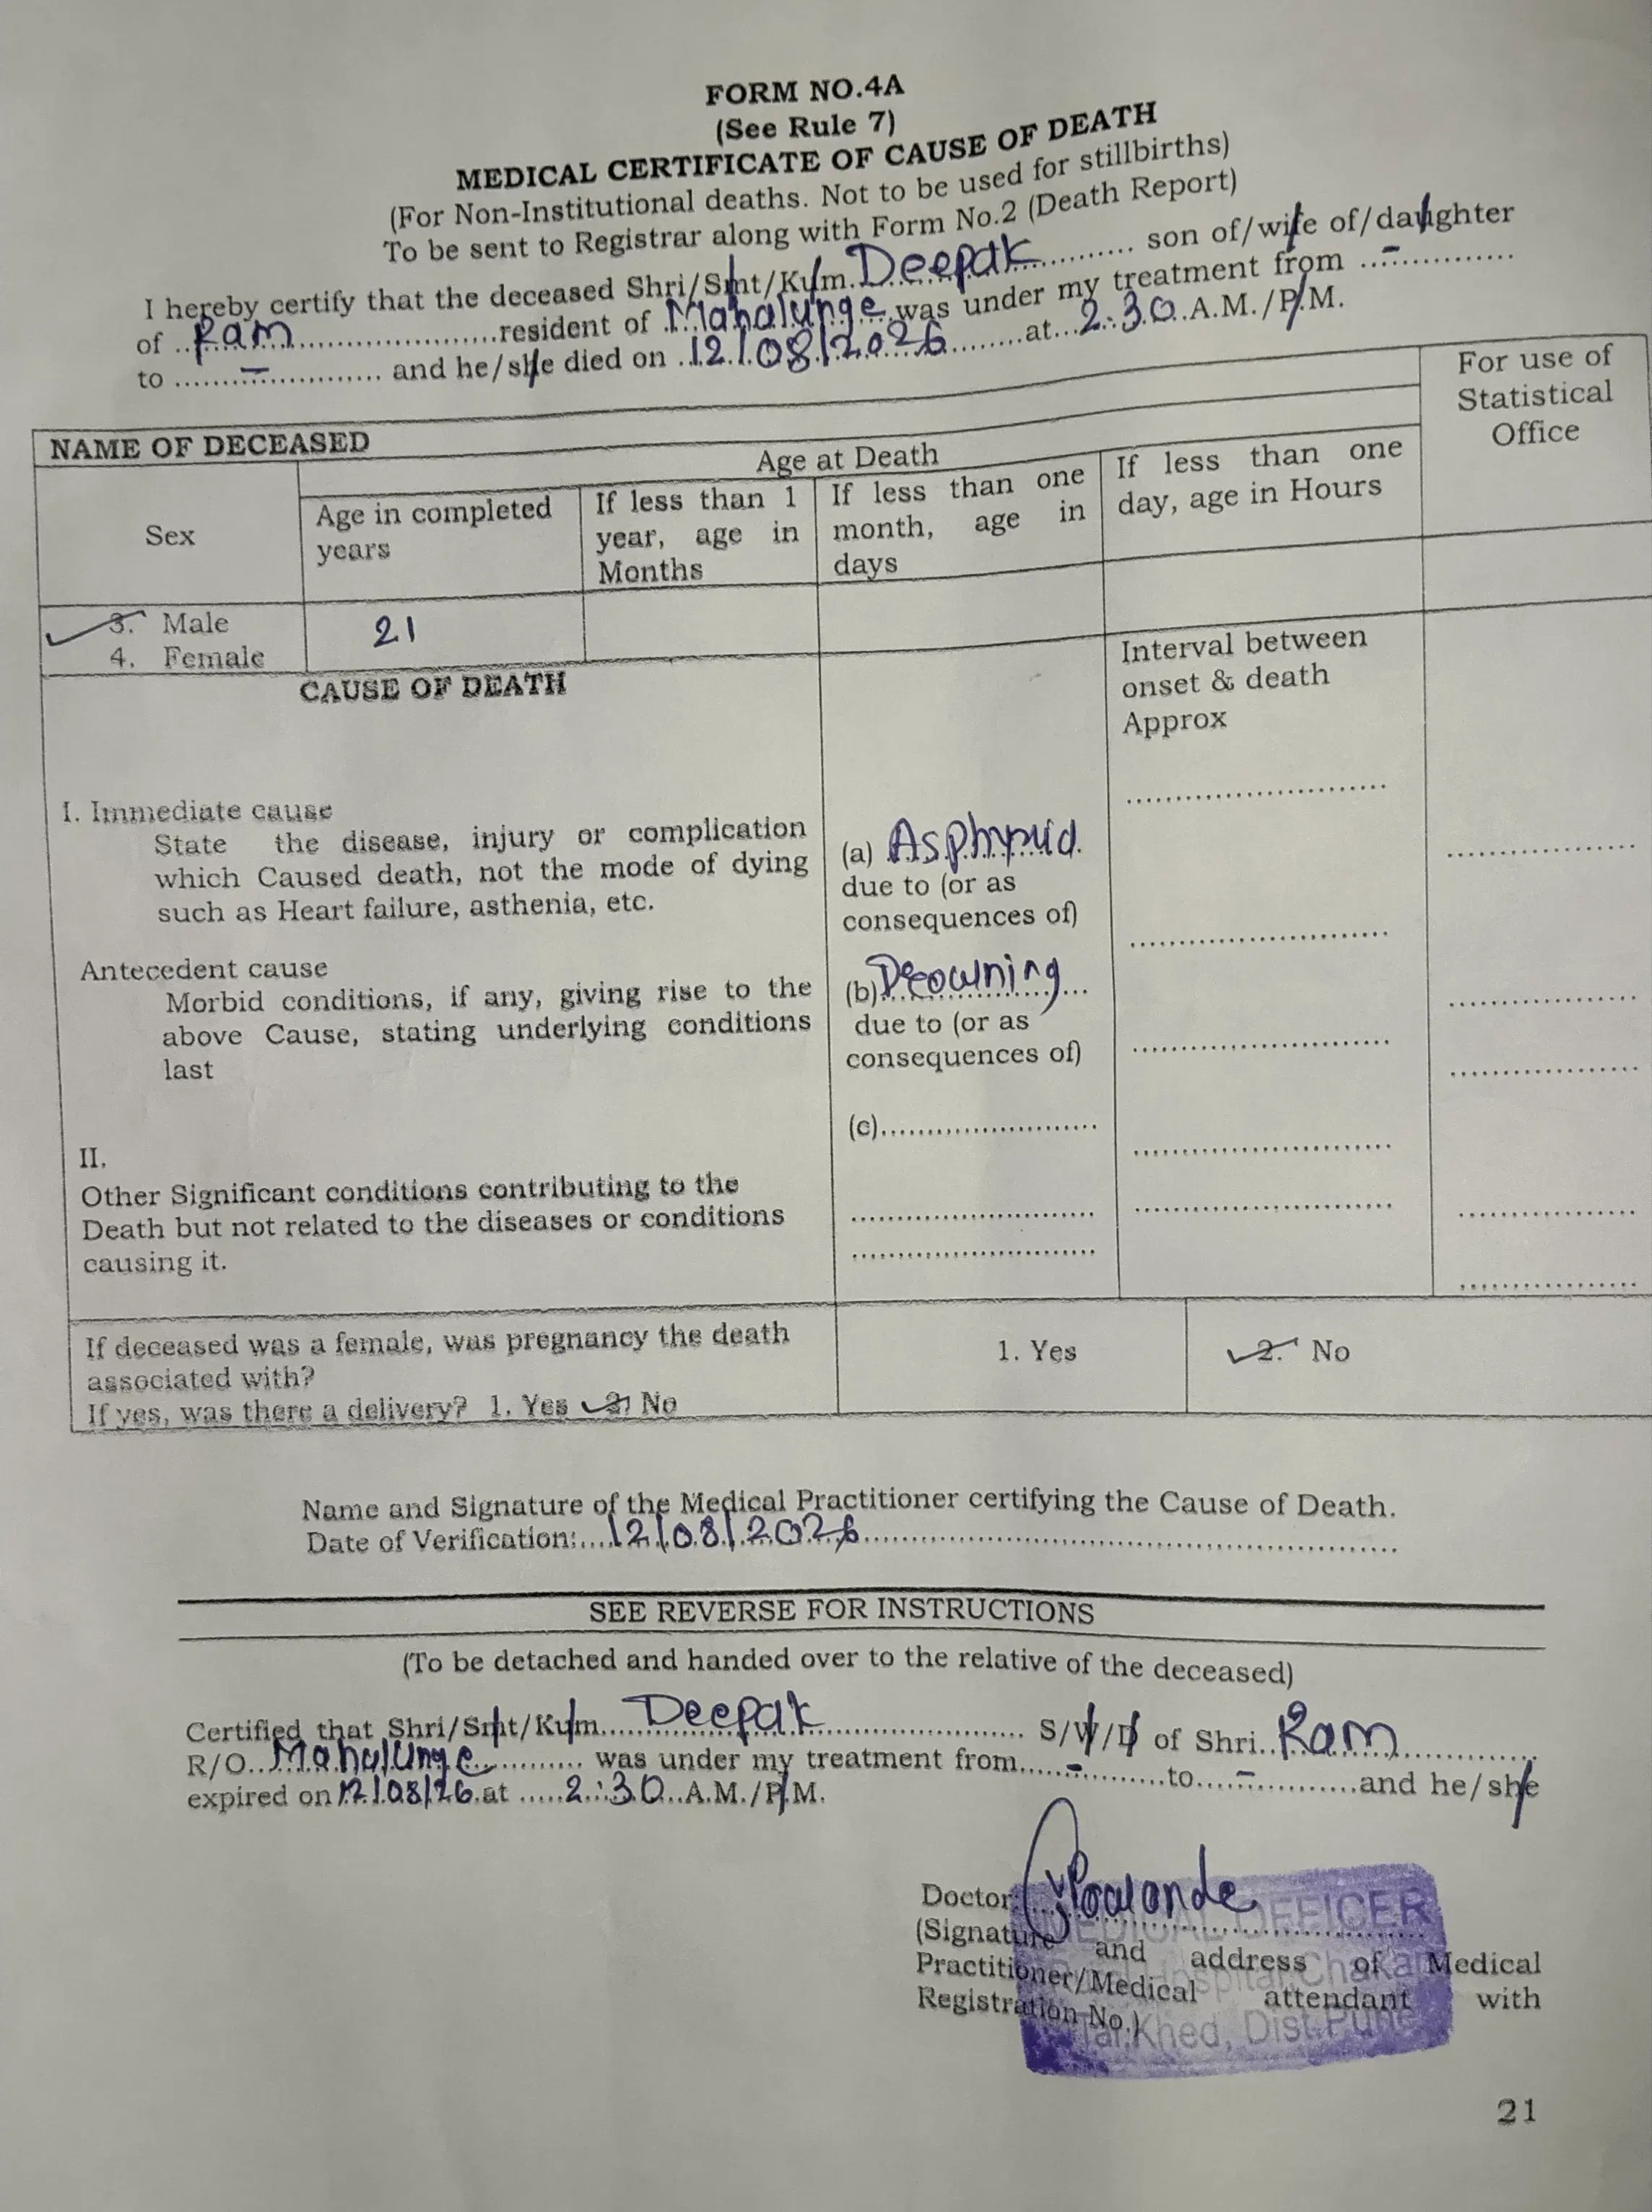 FORM NO.4A
(See Rule 7)
MEDICAL CERTIFICATE OF CAUSE OF DEATH
(For Non-Institutional deaths. Not to be used for stillbirths)
To be sent to Registrar along with Form No.2 (Death Report)
I hereby certify that the deceased Shri/Smt/Kum. Deepak son of/wife of/daughter
of Ram resident of Mahalunge was under my treatment from -
to - and he/she died on 12/08/2026 at 2:30 A.M./P.M.
NAME OF DECEASED
For use of Statistical Office
Sex
Age at Death
Age in completed years
If less than 1 year, age in Months
If less than one month, age in days
If less than one day, age in Hours
3. Male
4. Female
21
CAUSE OF DEATH
Interval between
onset & death
Approx
I. Immediate cause
State the disease, injury or complication
which Caused death, not the mode of dying
such as Heart failure, asthenia, etc.
(a) Asphyxia
due to (or as
consequences of)
Antecedent cause
Morbid conditions, if any, giving rise to the
above Cause, stating underlying conditions
last
(b) Drowning
due to (or as
consequences of)
(c)
II.
Other Significant conditions contributing to the
Death but not related to the diseases or conditions
causing it.
If deceased was a female, was pregnancy the death
associated with?
If yes, was there a delivery? 1. Yes 2. No
1. Yes
2. No
Name and Signature of the Medical Practitioner certifying the Cause of Death.
Date of Verification: 12/08/2026
SEE REVERSE FOR INSTRUCTIONS
(To be detached and handed over to the relative of the deceased)
Certified that Shri/Smt/Kum. Deepak S/W/D of Shri. Ram
R/O. Mahalunge was under my treatment from - to - and he/she
expired on 12/08/26 at 2:30 A.M./P.M.
Doctor:
(Signature and address of Medical
Practitioner/Medical attendant with
Registration No.)
MEDICAL OFFICER
Hospital, Chakan
Tal. Khed, Dist. Pune
21